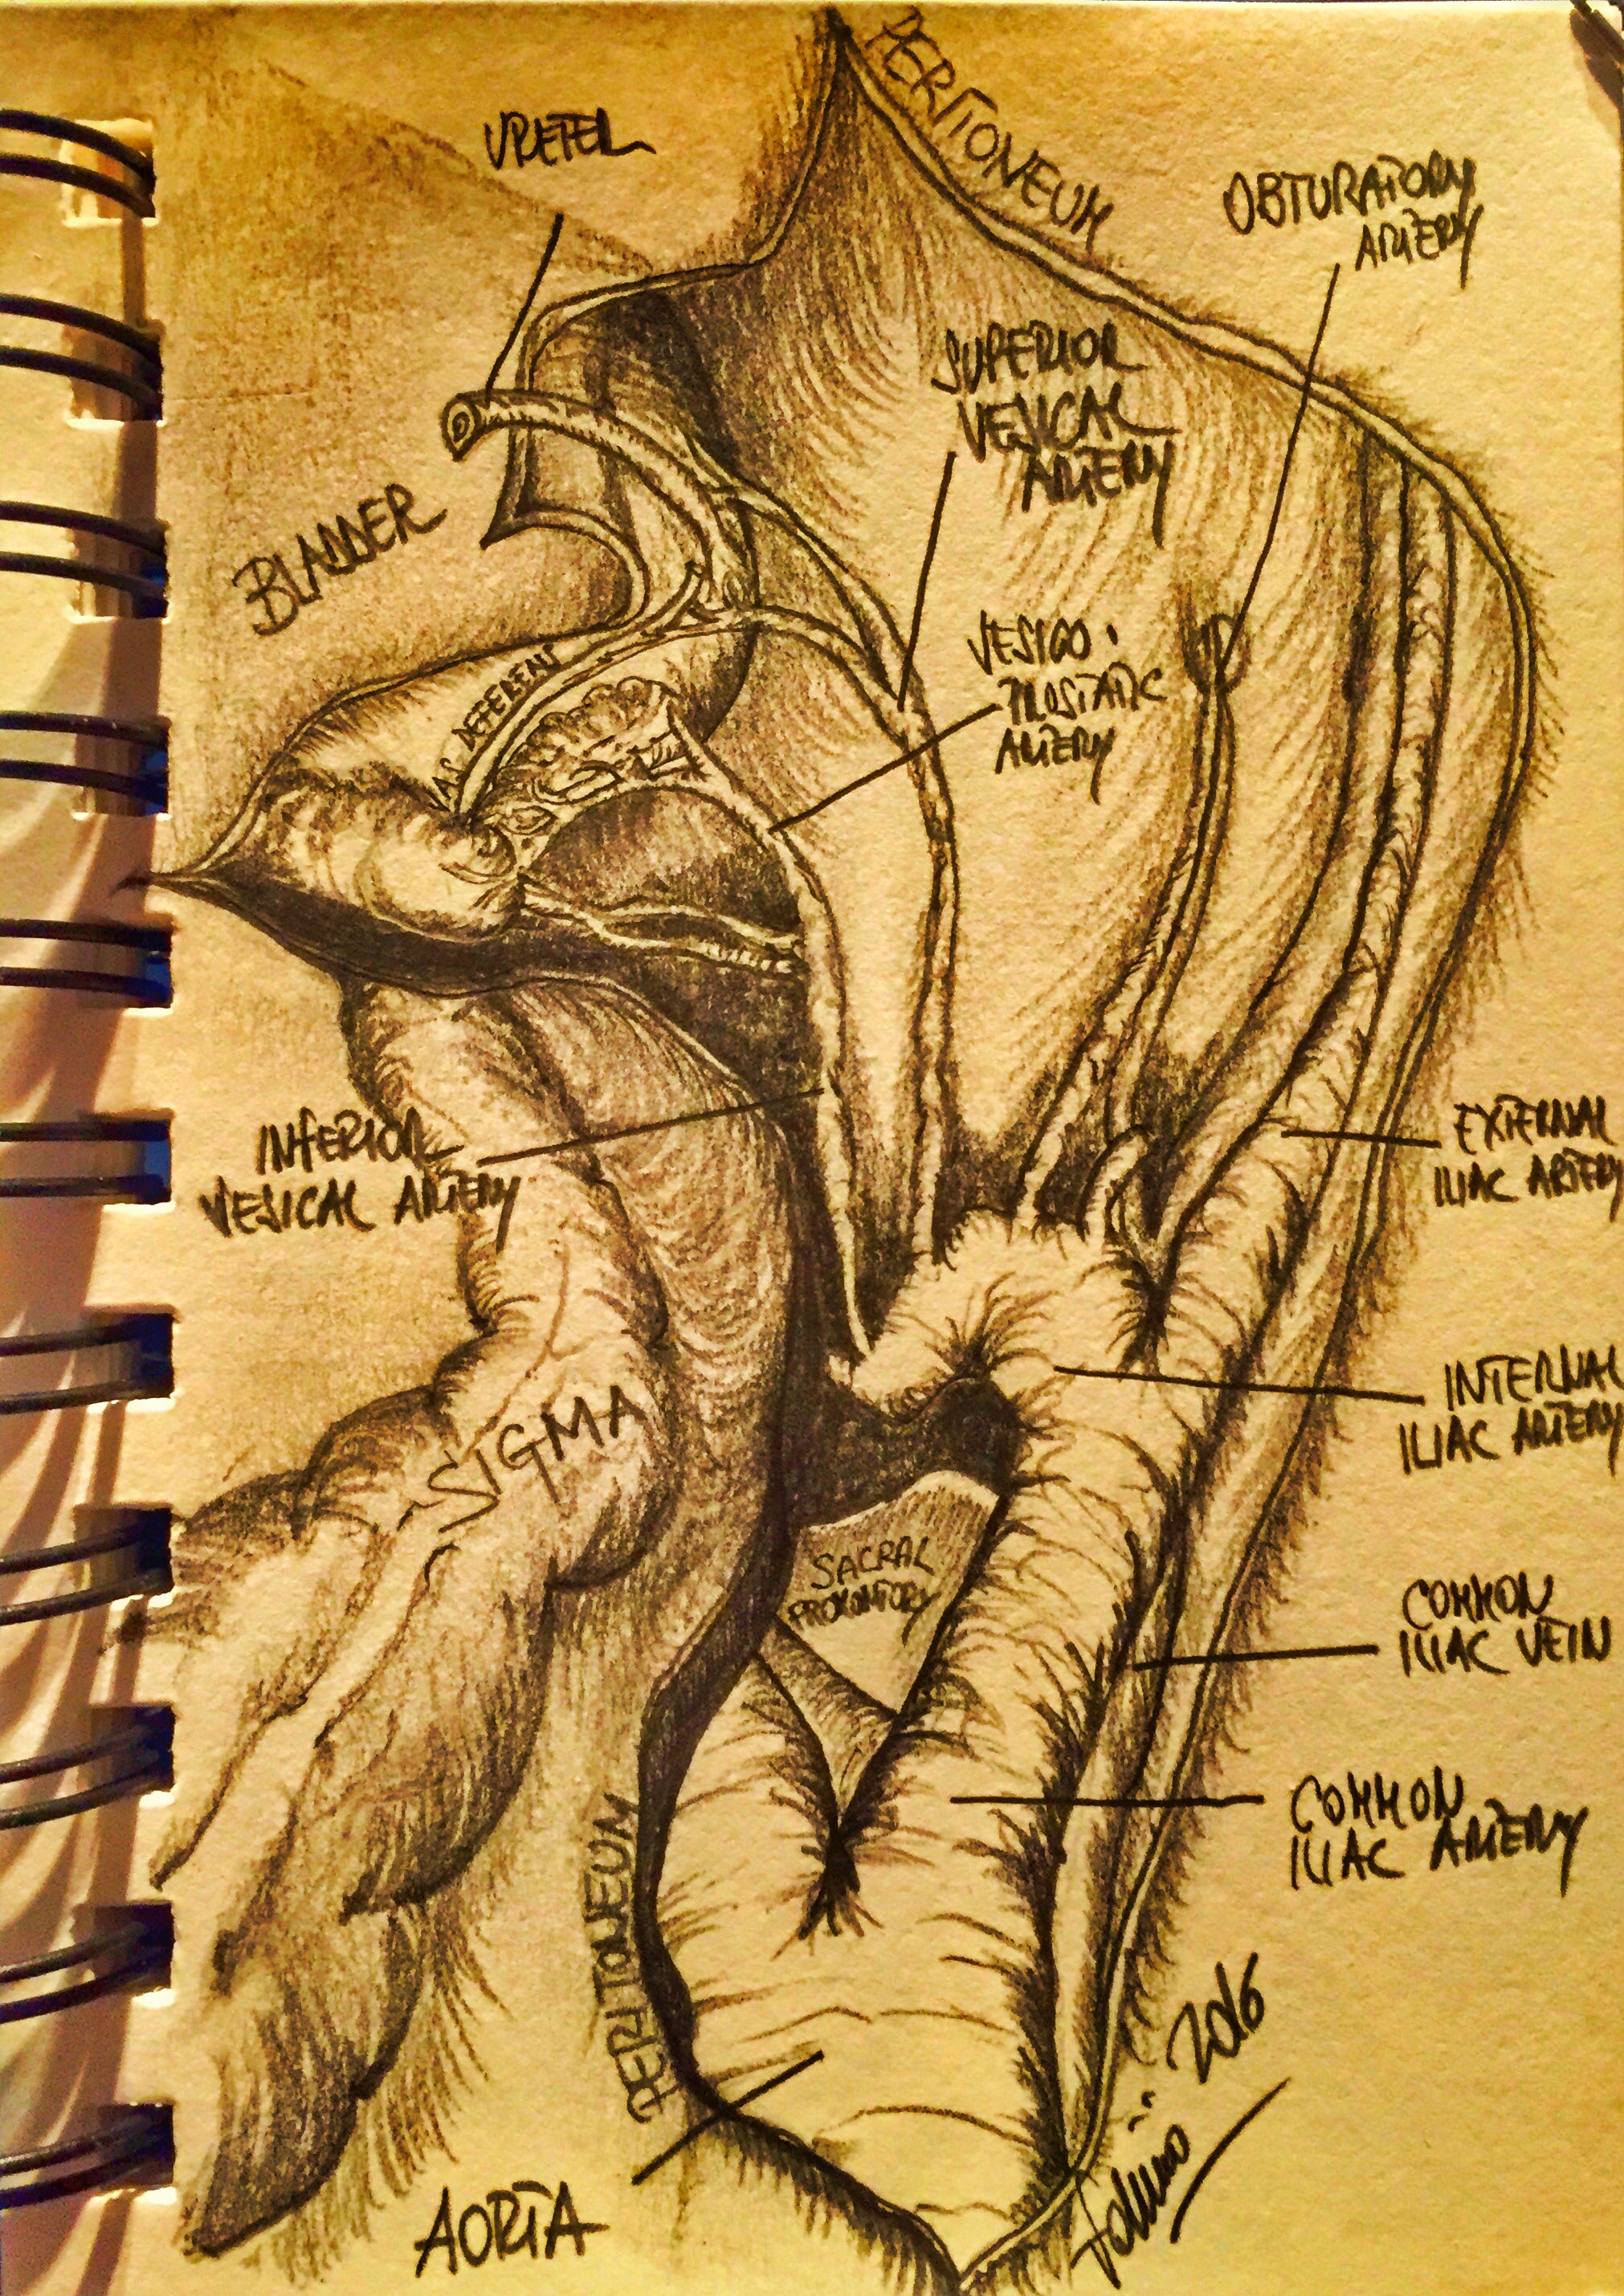 PERITONEUM
URETER
OBTURATORY
ARTERY
SUPERIOR
VESICAL
ARTERY
BLADDER
VESICO-
PROSTATIC
ARTERY
VAS DEFERENS
INFERIOR
VESICAL ARTERY
EXTERNAL
ILIAC ARTERY
INTERNAL
ILIAC ARTERY
SIGMA
SACRAL
PROMONTORY
COMMON
ILIAC VEIN
COMMON
ILIAC ARTERY
PERITONEUM
AORTA
2016